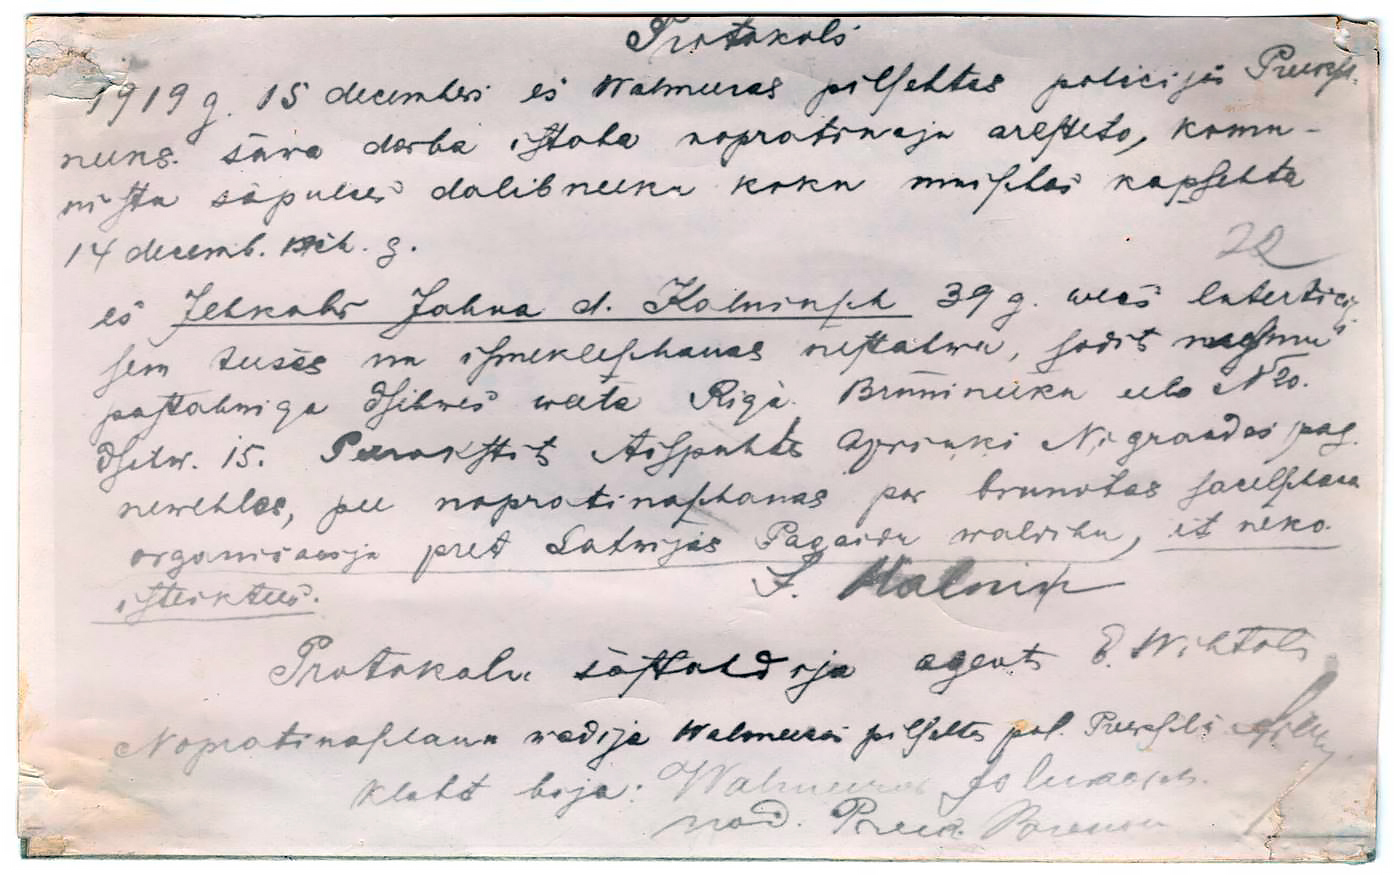 Protokols
1919 g. 15 decemberi es Walmeeras pilsehtas policijas Preeksch-
neeks sawa darba istaba nopratinaju aresteto, komu-
nistu sapulces dalibneeku koku muischas kapsehta
14 decemb. sch. g.
22
es Jehkabs Jahna d. Kalninsch 39 g. wecs luterticig.
sem teesas un ismekleschanas nestahwu, sodits neesmu
pastahwiga dsihwes weeta Rigà. Bruninieku eela N 20.
dsihw. 15. Peerakstits Aisputes Aprinki Nigrandas pag.
newehlos, pee nopratinaschanas par brunotas sacelschanas
organisaciju pret Latwijas Pagaidu waldibu, it neko
isteiktees.
J. Kalnin
Protokolu sastahdija agents E. Wihtols
Nopratinaschanu wadija Walmeeras pilsehtas pol. Preekschn.
Klaht bija: Walmeeras
nod. Preek.